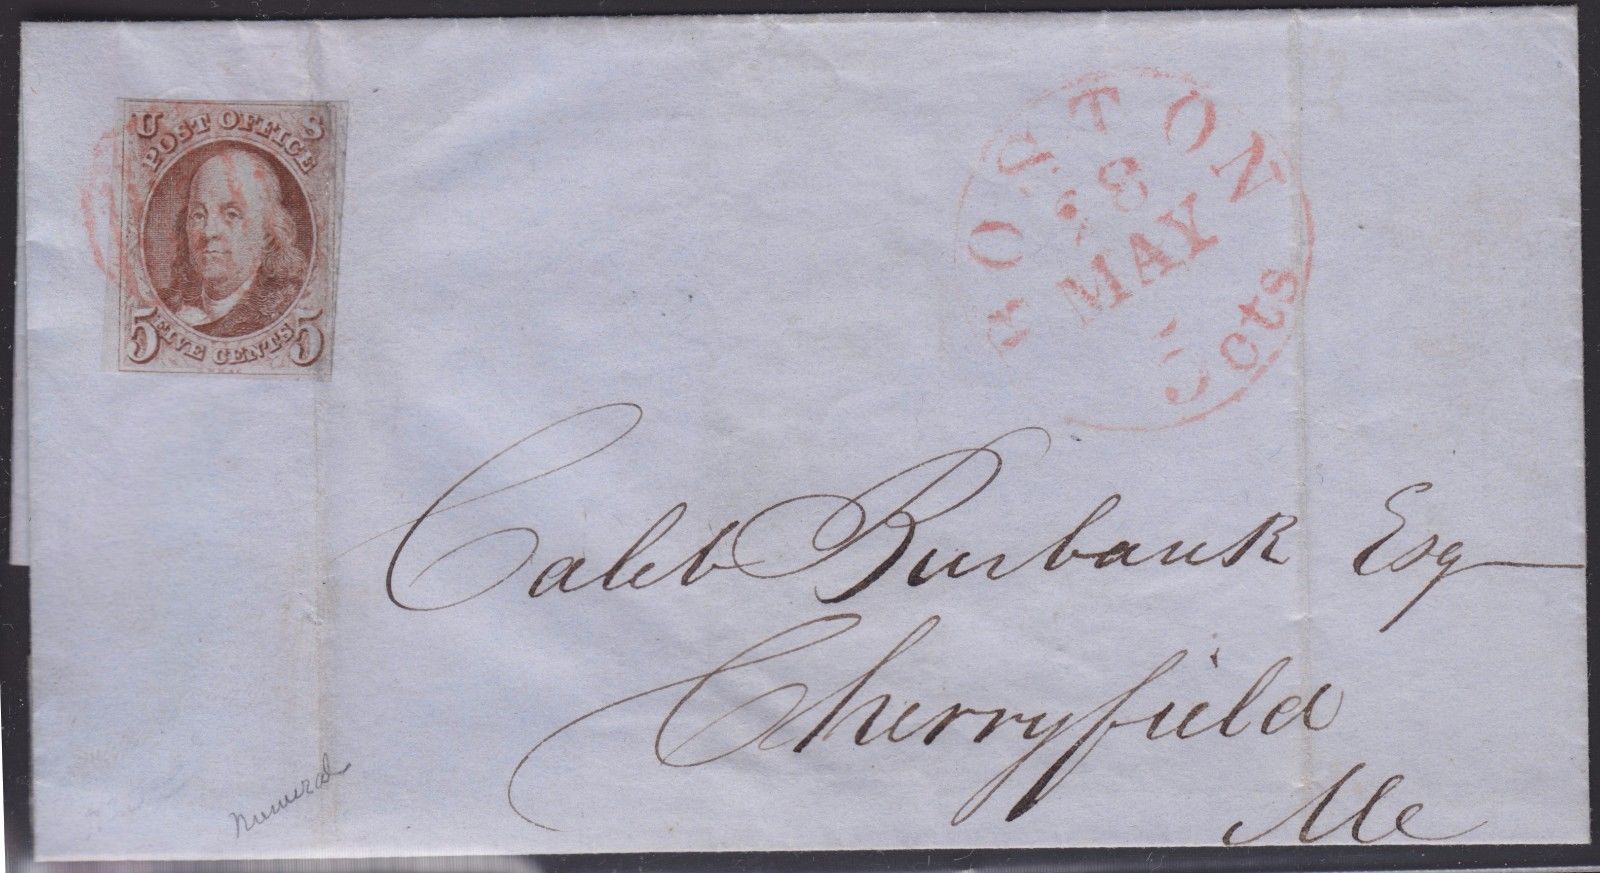 U S
POST OFFICE
5 FIVE CENTS 5
BOSTON
18
MAY
5 cts
Caleb Burbank Esq
Cherryfield
Me
Numeral